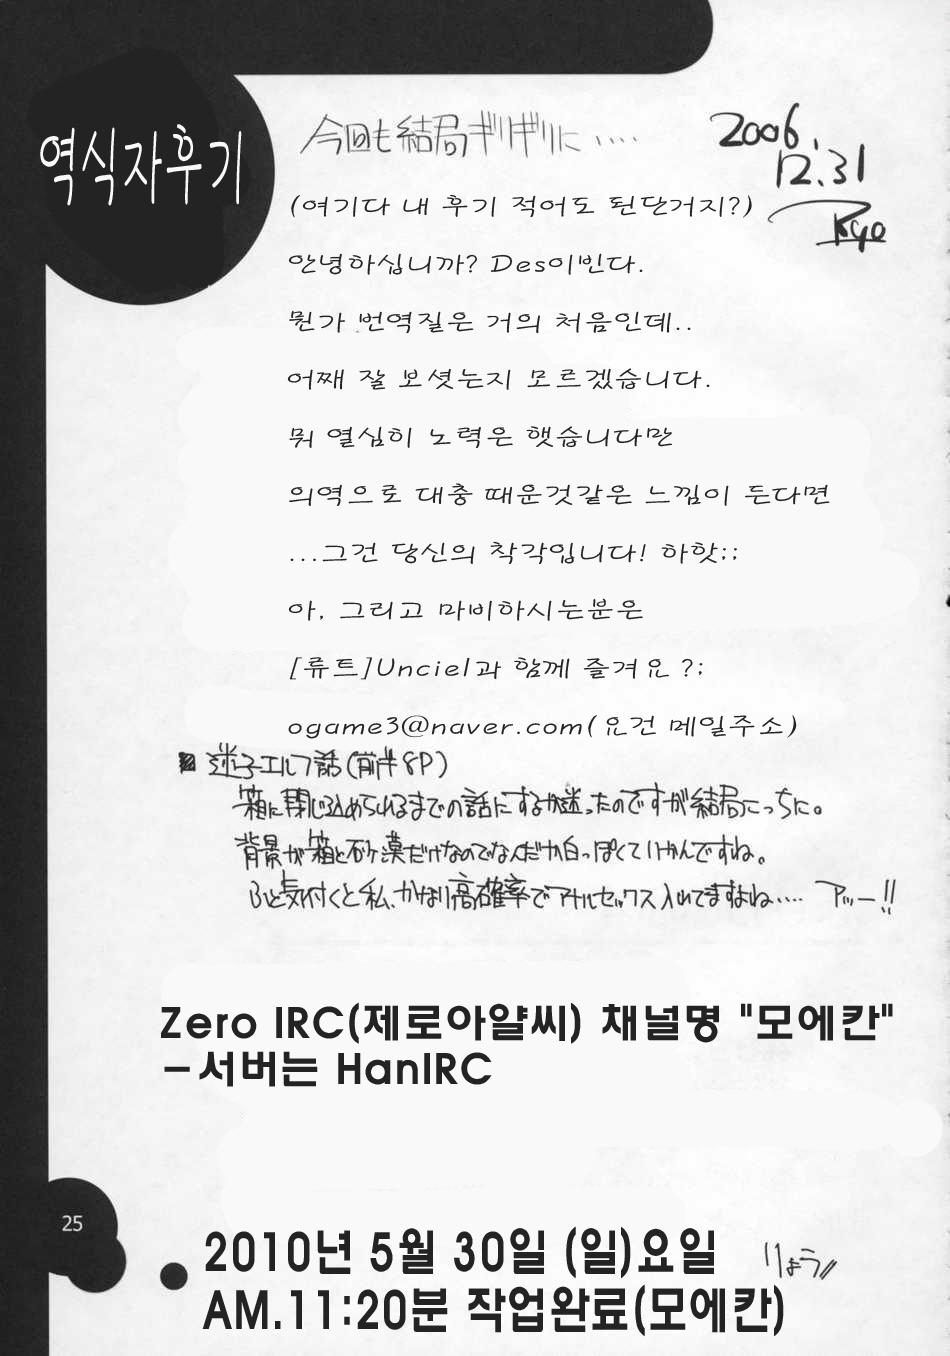 역식자후기
今回も結局ギリギリに....
2006.
12.31
Ryo
(여기다 내 후기 적어도 된단거지?)
안녕하십니까? Des이빈다.
뭔가 번역질은 거의 처음인데..
어째 잘 보셧는지 모르겠습니다.
뭐 열심히 노력은 햇습니다만
의역으로 대충 때운것같은 느낌이 든다면
...그건 당신의 착각입니다! 하핫;;
아, 그리고 마비하시는분은
[류트]Unciel과 함께 즐겨요 ?;
ogame3@naver.com(요건 메일주소)
迷子エルフ話(前半8P)
箱に閉じ込められるまでの話にするか迷ったのですが結局こっちに。
背景が箱と砂漠だけなのでなんだか白っぽくていかんですね。
ふと気付くと私、かなり高確率でアナルセックス入れてますよね.... アッー!!
Zero IRC(제로아얄씨) 채널명 "모에칸"
-서버는 HanIRC
25
2010년 5월 30일 (일)요일
りょう
AM.11:20분 작업완료(모에칸)